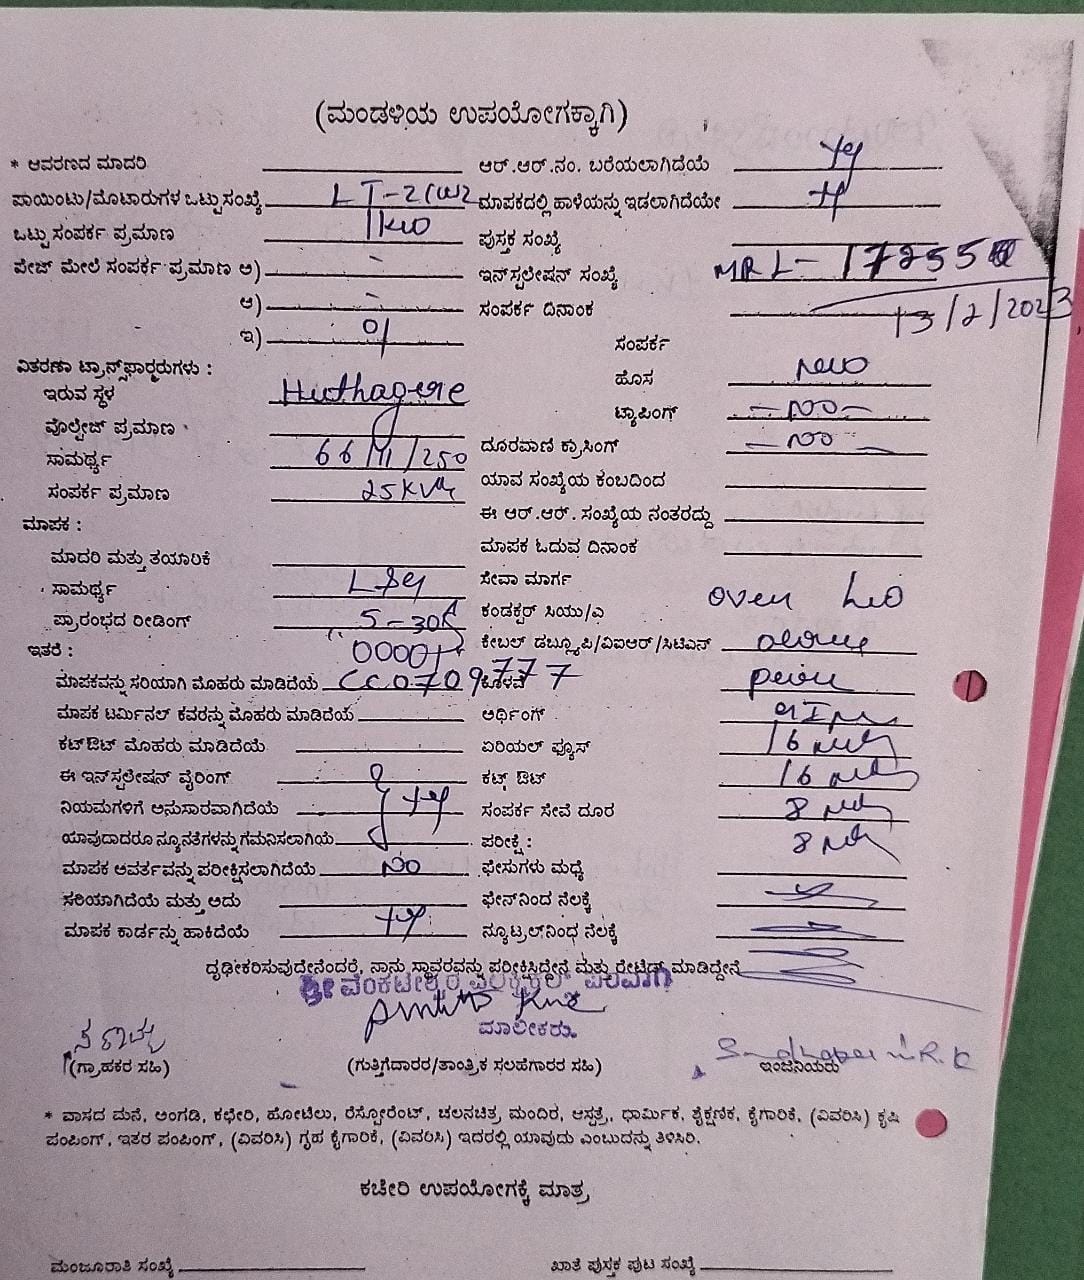 (ಮಂಡಳಿಯ ಉಪಯೋಗಕ್ಕಾಗಿ)
* ಆವರಣದ ಮಾದರಿ ಆರ್.ಆರ್.ನಂ. ಬರೆಯಲಾಗಿದೆಯೆ
ಪಾಯಿಂಟು/ಮೊಟಾರುಗಳ ಒಟ್ಟು ಸಂಖ್ಯೆ LT-2(a)2 ಮಾಪಕದಲ್ಲಿ ಹಾಳೆಯನ್ನು ಇಡಲಾಗಿದೆಯೇ
ಒಟ್ಟು ಸಂಪರ್ಕ ಪ್ರಮಾಣ 1kw ಪುಸ್ತಕ ಸಂಖ್ಯೆ
ಪೇಜ್ ಮೇಲೆ ಸಂಪರ್ಕ ಪ್ರಮಾಣ ಅ) - ಇನ್‌ಸ್ಟಲೇಷನ್ ಸಂಖ್ಯೆ MRL-17255
ಆ) - ಸಂಪರ್ಕ ದಿನಾಂಕ 13/2/2023
ಇ) ಸಂಪರ್ಕ
ವಿತರಣಾ ಟ್ರಾನ್ಸ್‌ಫಾರ್ಮರುಗಳು :
ಇರುವ ಸ್ಥಳ Huthagere ಹೊಸ new
ವೊಲ್ಟೇಜ್ ಪ್ರಮಾಣ ಟ್ಯಾಪಿಂಗ್ -no-
ಸಾಮರ್ಥ್ಯ 66/11/250 ದೂರವಾಣಿ ಕ್ರಾಸಿಂಗ್ -no-
ಸಂಪರ್ಕ ಪ್ರಮಾಣ 25KVA ಯಾವ ಸಂಖ್ಯೆಯ ಕಂಬದಿಂದ
ಮಾಪಕ : ಈ ಆರ್.ಆರ್. ಸಂಖ್ಯೆಯ ನಂತರದ್ದು
ಮಾದರಿ ಮತ್ತು ತಯಾರಿಕೆ ಮಾಪಕ ಓದುವ ದಿನಾಂಕ
ಸಾಮರ್ಥ್ಯ ಸೇವಾ ಮಾರ್ಗ
ಪ್ರಾರಂಭದ ರೀಡಿಂಗ್ 5-30A ಕಂಡಕ್ಟರ್ ಸಿಯು/ಎ
ಇತರೆ : ಕೇಬಲ್ ಡಬ್ಲ್ಯೂಪಿ/ಎಐಆರ್/ಸಿಟಿಎಸ್
ಮಾಪಕವನ್ನು ಸರಿಯಾಗಿ ಮೊಹರು ಮಾಡಿದೆಯೆ CC0709777 ಕೊಳವೆ
ಮಾಪಕ ಟರ್ಮಿನಲ್ ಕವರನ್ನು ಮೊಹರು ಮಾಡಿದೆಯೆ ಅರ್ಥಿಂಗ್
ಕಟ್‌ಔಟ್ ಮೊಹರು ಮಾಡಿದೆಯೆ ಏರಿಯಲ್ ಫ್ಯೂಸ್ 16
ಈ ಇನ್‌ಸ್ಟಲೇಷನ್ ವೈರಿಂಗ್ ಕಟ್ಸ್ ಔಟ್ 16
ನಿಯಮಗಳಿಗೆ ಅನುಸಾರವಾಗಿದೆಯೆ ಸಂಪರ್ಕ ಸೇವೆ ದೂರ 8
ಯಾವುದಾದರೂ ನ್ಯೂನತೆಗಳನ್ನು ಗಮನಿಸಲಾಗಿಯೆ ಪರೀಕ್ಷೆ : 8
ಮಾಪಕ ಆವರ್ತವನ್ನು ಪರೀಕ್ಷಿಸಲಾಗಿದೆಯೆ No ಫೇಸುಗಳು ಮಧ್ಯೆ
ಸರಿಯಾಗಿದೆಯೆ ಮತ್ತು ಅದು ಫೇಸ್‌ನಿಂದ ನೆಲಕ್ಕೆ
ಮಾಪಕ ಕಾರ್ಡನ್ನು ಹಾಕಿದೆಯೆ ನ್ಯೂಟ್ರಲ್‌ನಿಂಧ ನೆಲಕ್ಕೆ
ದೃಢೀಕರಿಸುವುದೇನೆಂದರೆ, ನಾನು ಸ್ಥಾವರವನ್ನು ಪರೀಕ್ಷಿಸಿದ್ದೇನೆ ಮತ್ತು ರೇಟೆಡ್ ಮಾಡಿದ್ದೇನೆ
ಶ್ರೀ ವೆಂಕಟೇಶ್ವರ
ಮಾಲೀಕರು.
(ಗ್ರಾಹಕರ ಸಹಿ) (ಗುತ್ತಿಗೆದಾರರ/ತಾಂತ್ರಿಕ ಸಲಹೆಗಾರರ ಸಹಿ) ಇಂಜಿನಿಯರು
* ವಾಸದ ಮನೆ, ಅಂಗಡಿ, ಕಛೇರಿ, ಹೋಟೆಲು, ರೆಸ್ಟೋರೆಂಟ್, ಚಲನಚಿತ್ರ ಮಂದಿರ, ಆಸ್ಪತ್ರೆ, ಧಾರ್ಮಿಕ, ಶೈಕ್ಷಣಿಕ, ಕೈಗಾರಿಕೆ, (ವಿವರಿಸಿ) ಕೃಷಿ
ಪಂಪಿಂಗ್, ಇತರ ಪಂಪಿಂಗ್, (ವಿವರಿಸಿ) ಗೃಹ ಕೈಗಾರಿಕೆ, (ವಿವರಿಸಿ) ಇದರಲ್ಲಿ ಯಾವುದು ಎಂಬುದನ್ನು ತಿಳಿಸಿರಿ.
ಕಚೇರಿ ಉಪಯೋಗಕ್ಕೆ ಮಾತ್ರ
ಮಂಜೂರಾತಿ ಸಂಖ್ಯೆ ಖಾತೆ ಪುಸ್ತಕ ಪುಟ ಸಂಖ್ಯೆ